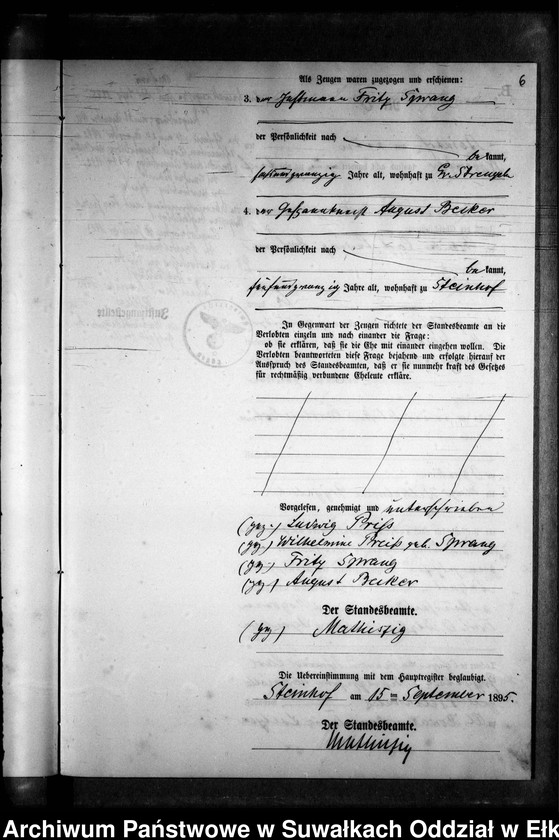 6
Als Zeugen waren zugezogen und erschienen:
3. der Instmann Fritz Sprang
der Persönlichkeit nach
bekannt,
sechsundzwanzig Jahre alt, wohnhaft zu Gr. Strengeln
4. der August Becker
der Persönlichkeit nach
bekannt,
fünfundzwanzig Jahre alt, wohnhaft zu Steinhof
In Gegenwart der Zeugen richtete der Standesbeamte an die
Verlobten einzeln und nach einander die Frage:
ob sie erklären, daß sie die Ehe mit einander eingehen wollen. Die
Verlobten beantworteten diese Frage bejahend und erfolgte hierauf der
Ausspruch des Standesbeamten, daß er sie nunmehr kraft des Gesetzes
für rechtmäßig verbundene Eheleute erkläre.
Vorgelesen, genehmigt und unterschrieben
(gez.) Ludwig Preiß
(gez.) Wilhelmine Preiß geb. Sprang
(gez.) Fritz Sprang
(gez.) August Becker
Der Standesbeamte.
(gez.) Mathiszig
Die Uebereinstimmung mit dem Hauptregister beglaubigt.
Steinhof am 15ten September 1895.
Der Standesbeamte.
Mathiszig
Archiwum Państwowe w Suwałkach Oddział w Ełk